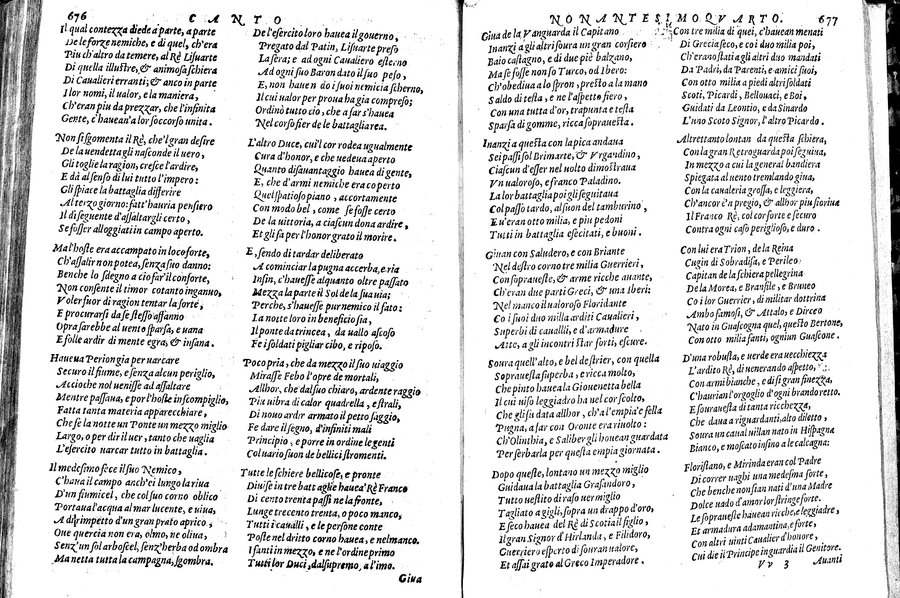 676
CANTO
Il qual contezza diede a parte, a parte
De le forze nemiche, e di quel, ch'era
Piu ch'altro da temere, al Rè Lisuarte
Di quella illustre, & animosa schiera
Di Caualieri erranti; & anco in parte
Il lor nomi, il ualor, e la maniera,
Ch'eran piu da prezzar, che l'infinita
Gente, c'hauean'a lor soccorso unita.
Non si sgomenta il Rè, che'l gran desire
De la uendetta gli nasconde il uero,
Gli toglie la ragion, cresce l'ardire,
E dà al senso di lui tutto l'impero:
Gli spiace la battaglia differire
Al terzo giorno: fatt'hauria pensiero
Il di seguente d'assaltargli certo,
Se fosser alloggiati in campo aperto.
Ma l'hoste era accampato in loco forte,
Ch'assalir non potea, senza suo danno:
Benche lo sdegno a cio far il conforte,
Non consente il timor cotanto inganno,
Voler suor di ragion tentar la sorte,
E procurarsi da se stesso affanno
Opra sarebbe al uento sparsa, e uana
E folle ardir di mente egra, & insana.
Haueua Perion gia per uarcare
Securo il fiume, e senza alcun periglio,
Accioche nol uenisse ad assaltare
Mentre passaua, e por l'hoste in scompiglio,
Fatta tanta materia apparecchiare,
Che fe la notte un Ponte un mezzo miglio
Largo, o per dir il uer, tanto che uaglia
L'esercito uarcar tutto in battaglia.
Il medesimo fece il suo Nemico,
C'haua il campo anch'ei lungo la riua
D'un fiumicel, che col suo corno oblico
Portaua l'acqua al mar lucente, e uiua,
A dirimpetto d'un gran prato aprico,
Oue quercia non era, olmo, ne oliua,
Senz'un sol arboscel, senz'herba od ombra
Ma netta tutta la campagna, sgombra.
De l'esercito loro hauea il gouerno,
Pregato dal Patin, Lisuarte preso
La sera; e ad ogni Caualiero esterno
Ad ogni suo Baron dato il suo peso,
E, non hauendo i suoi nemici a scherno,
Il cui ualor per proua ha gia compreso;
Ordinò tutto cio, che a far s'hauea
Nel corso fier de le battaglia rea.
L'altro Duce, cui'l cor rodea ugualmente
Cura d'honor, e che uedeua aperto
Quanto disauantaggio hauea di gente,
E, che d'armi nemiche era coperto
Quel spatioso piano, accortamente
Con modo bel, come se fosse certo
De la uittoria, a ciascun dona ardire,
Et gli fa per l'honor grato il morire.
E, sendo di tardar deliberato
A cominciar la pugna acerba, e ria
Insin, c'hauesse alquanto oltre passato
Mezza la parte il Sol de la sua uia;
Perche, s'hauesse pur nemico il fato:
La notte loro in beneficio sia,
Il ponte da trincea, da uallo ascoso
Fe i soldati pigliar cibo, e riposo.
Poco pria, che da mezzo il suo uiaggio
Mirasse Febo l'opre de mortali,
Allhor, che dal suo chiaro, ardente raggio
Piu uibra di calor quadrella, e strali,
Di nouo ardir armato il petto saggio,
Fe dare il segno, d'infiniti mali
Principio, e porre in ordine le genti
Col uario suon de bellici stromenti.
Tutte le schiere bellicose, e pronte
Diuise in tre battaglie hauea'l Rè Franco
Di cento trenta passi ne la fronte,
Lunge trecento trenta, o poco manco,
Tutti i caualli, e le persone conte
Poste nel dritto corno hauea, e nel manco.
I fanti in mezzo, e ne l'ordine primo
Tutti lor Duci, dal supremo, a l'imo.
Giua
NONANTESIMOQVARTO.
677
Giua de la Vanguarda il Capitano
Inanzi a gli altri soura un gran corsiero
Baio castagno, e di due piè balzano,
Ma se fosse non so Turco, od Ibero:
Ch'obediua a lo spron, presto a la mano
Saldo di testa, e ne l'aspetto fiero,
Con una tutta d'or, trapunta e testa
Sparsa di gomme, ricca soprauesta.
Inanzi a questa con la pica andaua
Sei passi sol Brimarte, & Vrgandino,
Ciascun d'esser nel uolto dimostraua
Vn ualoroso, e franco Paladino.
La lor battaglia poi gli seguitaua
Col passo tardo, al suon del tamburino,
Eu'eran otto milia, e piu pedoni
Tutti in battaglia esecitati, e buoni.
Giuan con Saludero, e con Briante
Nel destro corno tre milia Guerrieri,
Con soprauesta, & arme ricche auante,
Ch'eran due parti Greci, & una Iberi:
Nel manco il ualoroso Floridante
Co i suoi duo milla arditi Caualieri,
Superbi di cauallli, e d'armadure
Atte, a gli incontri star forti, e scure.
Soura quell'alto, e bel destrier, con quella
Soprauesta superba, e ricca molto,
Che pinto hauea la Giouenetta bella
Il cui uiso leggiadro ha nel cor scolto,
Che gli fu data allhor, ch'a l'empia e fella
Pugna, a far con Oronte era riuolto:
Ch'Olinthia, e Salibergl'houean guardata
Per serbarla per questa empia giornata.
Dopo queste, lontano un mezzo miglio
Guidaua la battaglia Grasandoro,
Tutto uestito di raso uermiglio
Tagliato a gigli, sopra un drappo d'oro,
E seco hauea del Rè di Scotia il figlio,
Il gran Signor d'Hirlanda, e Filidoro,
Guerriero esperto di souran ualore,
Et assai grato al Greco Imperadore.
Con tre milia di quei, c'hauean menati
Di Grecia seco, e coi duo milia poi,
Ch'erano stati a gli altri duo mandati
Da Padri, da Parenti, e amici suoi,
Con otto milia a piedi altri soldati
Scoti, Picardi, Bellouaci, e Boi,
Guidati da Leontio, e da Sinardo
L'uno Scoto Signor, l'altro Picardo.
Altrettanto lontan da questa schiera,
Con la gran Retroguarda poi seguiua,
In mezzo a cui la general bandiera
Spiegata al uento tremlando giua,
Con la caualeria grossa, e leggiera,
Ch'ancor è a pregio, & allhor piu fioriua
Il Franco Rè, col cor forte e securo
Contra ogni caso periglioso, e duro.
Con lui era Trion, de la Reina
Cugin di Sobradisa, e Perileo:
Capitan de la schiera pellegrina
De la Morea, e Branfile, e Bruneo
Co i lor Guerrier, di militar dottrina
Ambo famosi, & Attalo, e Dirceo
Nato in Guascogna quel, questo Bertone,
Con otto milia fanti, ogniun Guascone.
D'una robusta, e uerde era uecchiezza
L'ardito Rè, di uenerando aspetto,
Con armi bianche, e di si gran finezza,
C'haurian l'orgoglio d'ogni brando retto.
E soura uesta di tanta ricchezza,
Che daua a riguardanti, alto diletto,
Soura un caual uillan nato in Hispagna
Bianco, e moscato insino a le calcagna:
Florisiano, e Mirinda eran col Padre
Di correr uaghi una medesma sorte,
Che benche non sian nati d'una Madre
Dolce nodo d'amor lor stringe forte.
Le soprauesta haueuan ricche, e leggiadre,
Et armadura adamantina, e forte,
Con altri uinti Caualier d'honore,
Cui die il Principe in guardia il Genitore.
Vv 3
Auanti